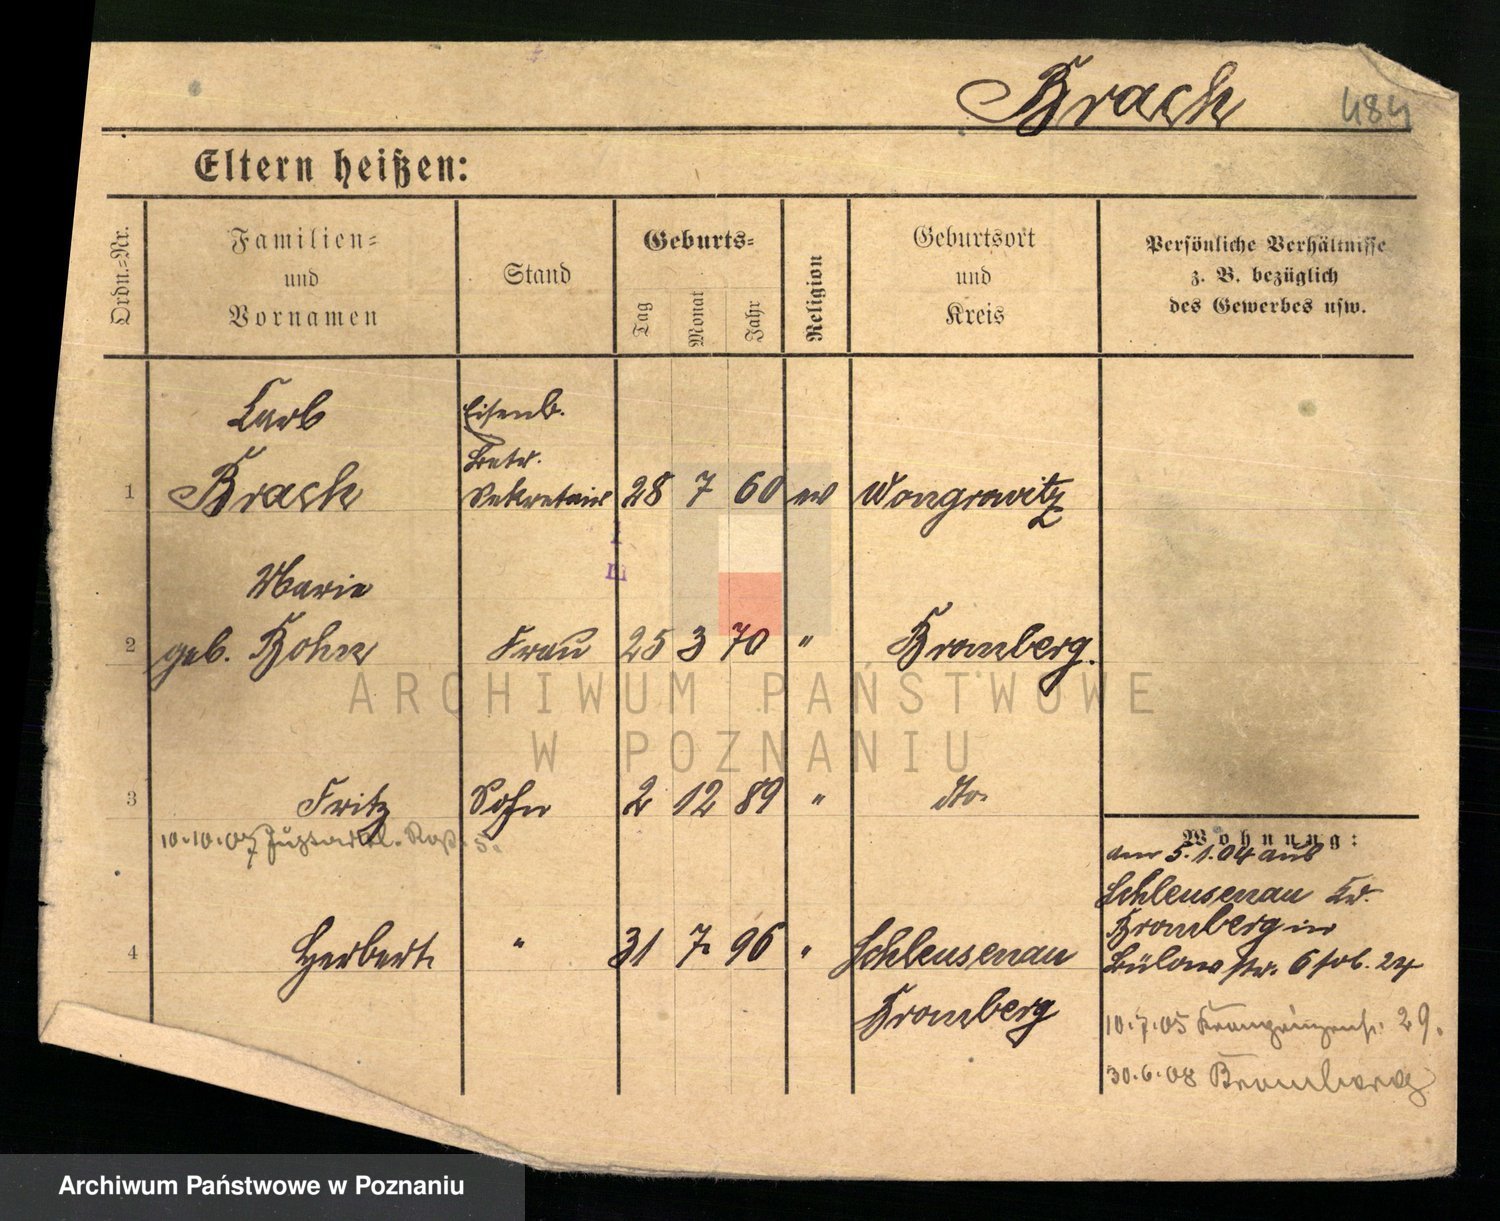 Brach 484
Eltern heißen:
Ordn.=Nr.
Familien=
und
Vornamen
Stand
Geburts=
Tag
Monat
Jahr
Religion
Geburtsort
und
Kreis
Persönliche Verhältnisse
z. B. bezüglich
des Gewerbes usw.
Carl
Eisenb.
Betr.
1 Brach Sekretair 28 7 60 ev Wongrowitz
Marie
2 geb. Bohn Frau 25 3 70 " Bromberg.
3 Fritz Sohn 2 12 89 " dto.
10.10.07 5.
Wohnung:
am 5.1.04 aus
Schleusenau Kr.
Bromberg in
Bülowstr. 6 24
4 Herbert. " 31 7. 96 " Schleusenau
Bromberg
10.7.05 Kronprinzenstr. 29.
30.6.08 Bromberg
ARCHIWUM PAŃSTWOWE
W POZNANIU
Archiwum Państwowe w Poznaniu